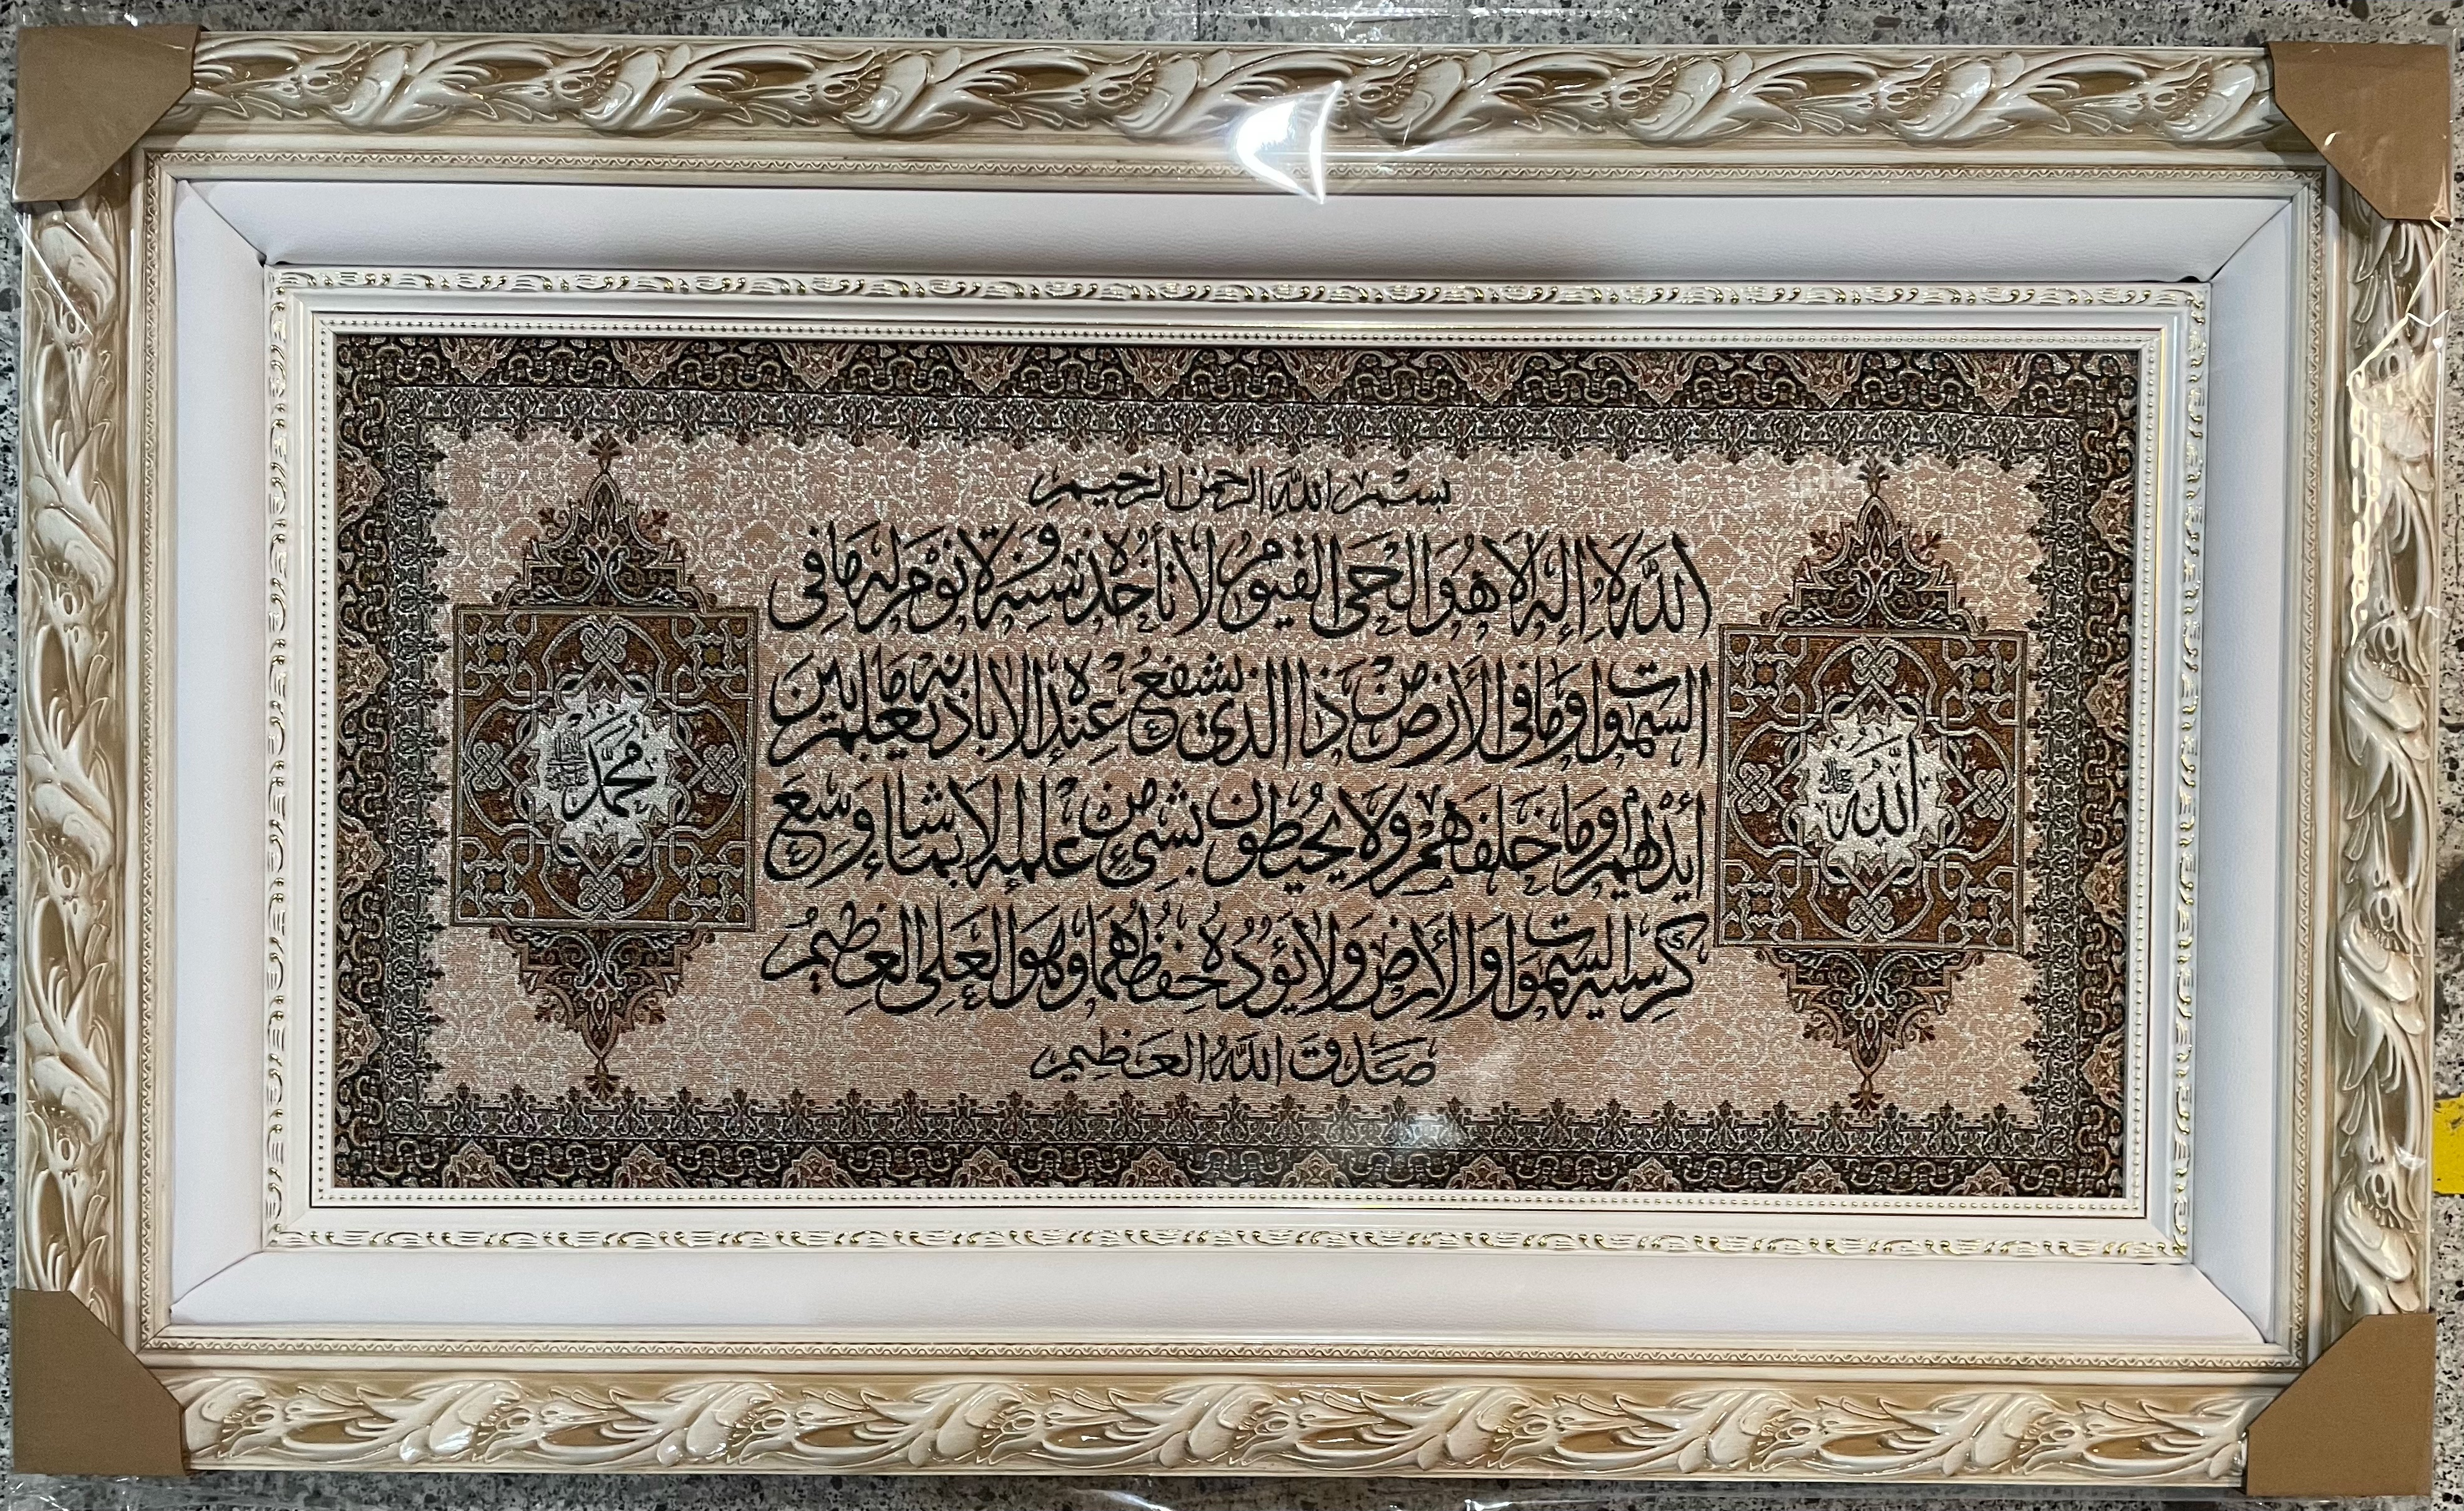 بسم الله الرحمن الرحيم
الله لا إله إلا هو الحي القيوم لا تأخذه سنة ولا نوم له ما في
السموات وما في الأرض من ذا الذي يشفع عنده إلا بإذنه يعلم ما بين
أيديهم وما خلفهم ولا يحيطون بشيء من علمه إلا بما شاء وسع
كرسيه السموات والأرض ولا يؤده حفظهما وهو العلي العظيم
صدق الله العظيم
الله
جل جلاله
محمد